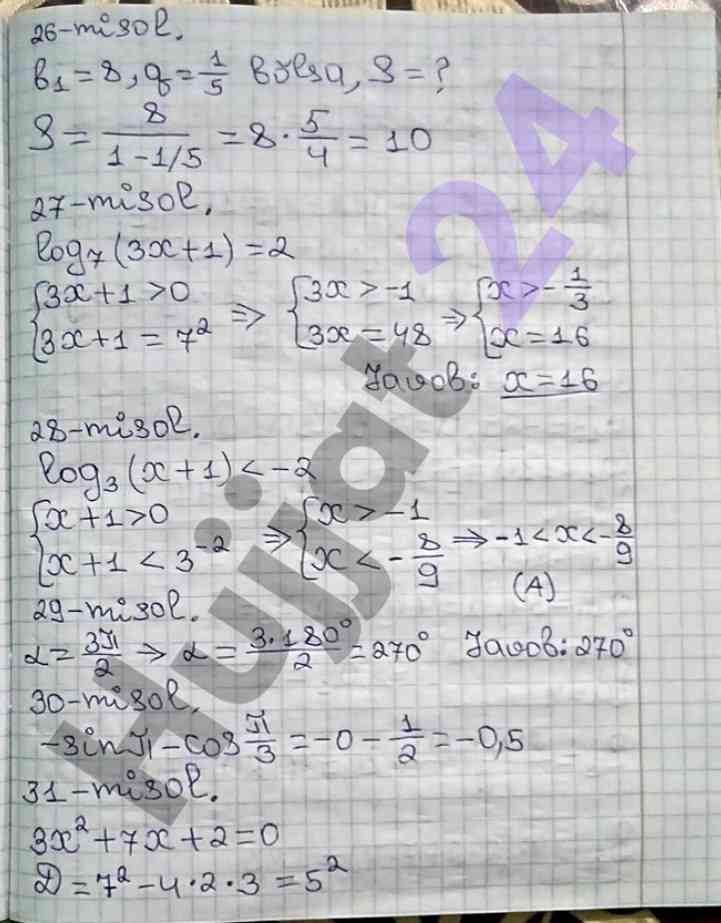 26-misol.
b₁=8, q=1/5 bo'lsa, S=?
S = 8/(1-1/5) = 8·5/4 = 10
27-misol.
log₇(3x+1)=2
{3x+1>0 {3x>-1 {x>-1/3
{3x+1=7² ⇒ {3x=48 ⇒ {x=16
Javob: x=16
28-misol.
log₃(x+1)<-2
{x+1>0 {x>-1
{x+1<3⁻² ⇒ {x<-8/9 ⇒ -1<x<-8/9
(A)
29-misol.
α=3π/2 ⇒ α=3·180°/2=270° Javob: 270°
30-misol.
-sinπ-cosπ/3=-0-1/2=-0,5
31-misol.
3x²+7x+2=0
D=7²-4·2·3=5²
Hujjat 24